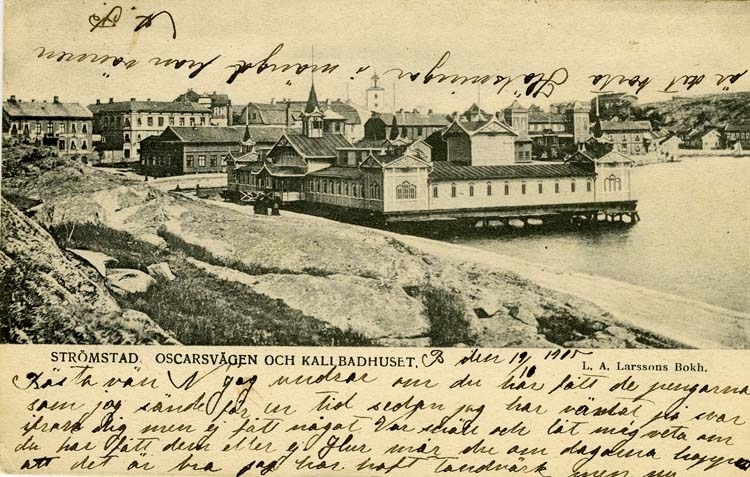 STRÖMSTAD. OSCARSVÄGEN OCH KALLBADHUSET.
L. A. Larssons Bokh.
B den 19/10 1905
Bästa vän N jag undrar om du har fått de pengarna
som jag sände för en tid sedan jag har väntat på svar
ifrån dig men ej fått något Var snäll och låt mig veta om
du har fått dem eller ej Hur mår du om dagarna hoppas
att det är bra jag har haft tandvärk men nu
är det borta Hälsningar i mängd från vännen